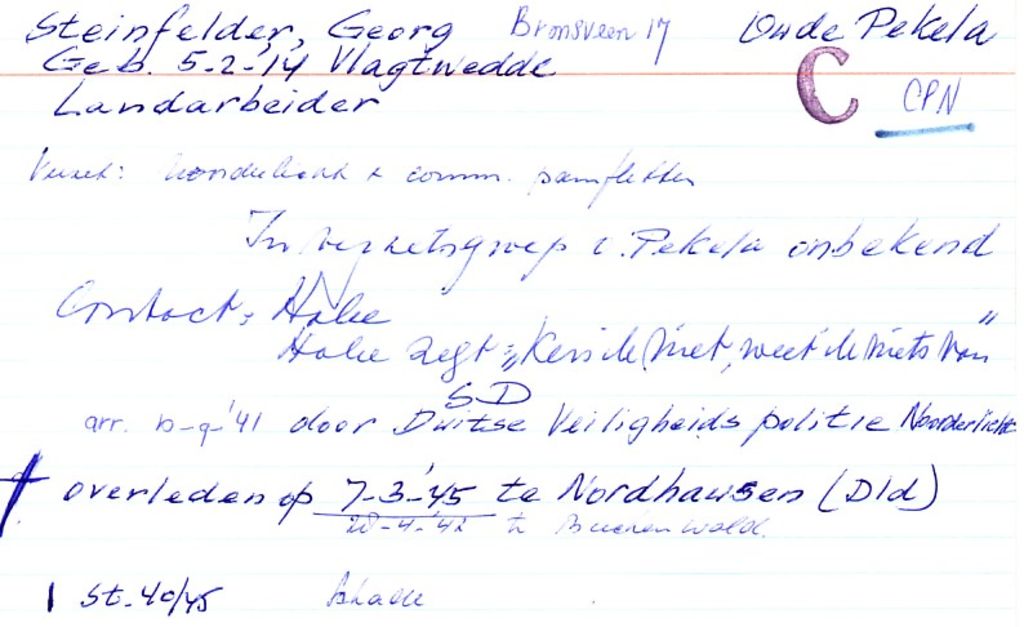 Steinfelder, Georg Bronsveen 17 Oude Pekela
Geb. 5-2-'14 Vlagtwedde
C CPN
Landarbeider
Verzet: & comm. pamfletten
In verzetsgroep i. Pekela onbekend
Contact: Hake
Hake zegt: „Ken ik niet, weet ik niets van"
SD
arr. 10-9-'41 door Duitse Veiligheidspolitie Noorderlicht
† overleden op 7-3-'45 te Nordhausen (Dld)
28-4-'42 te Buchenwald.
1 St. 40/45